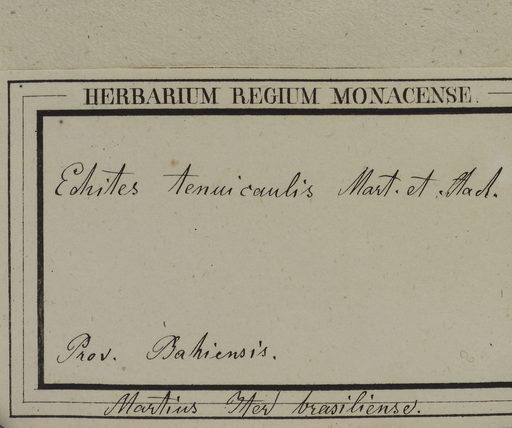 HERBARIUM REGIUM MONACENSE.
Echites tenuicaulis Mart. et Stad.
Prov. Bahiensis.
Martius Iter brasiliense.